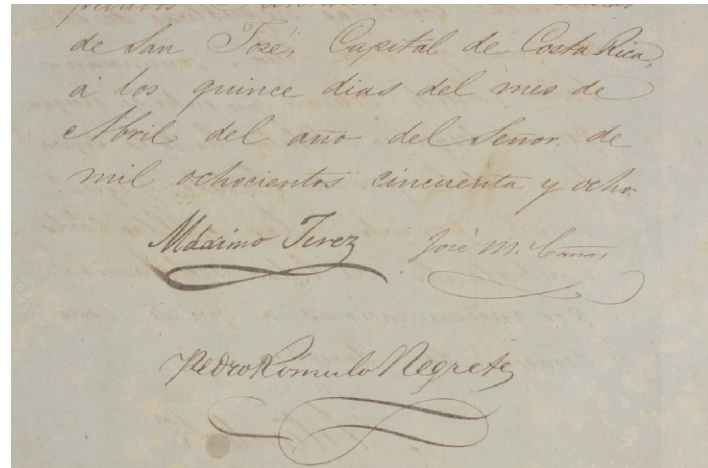 de San José, Capital de Costa Rica,
á los quince dias del mes de
Abril del año del Señor. de
mil ochocientos cincuenta y ocho.
Máximo Jerez José M. Cañas
Pedro Rómulo Negrete